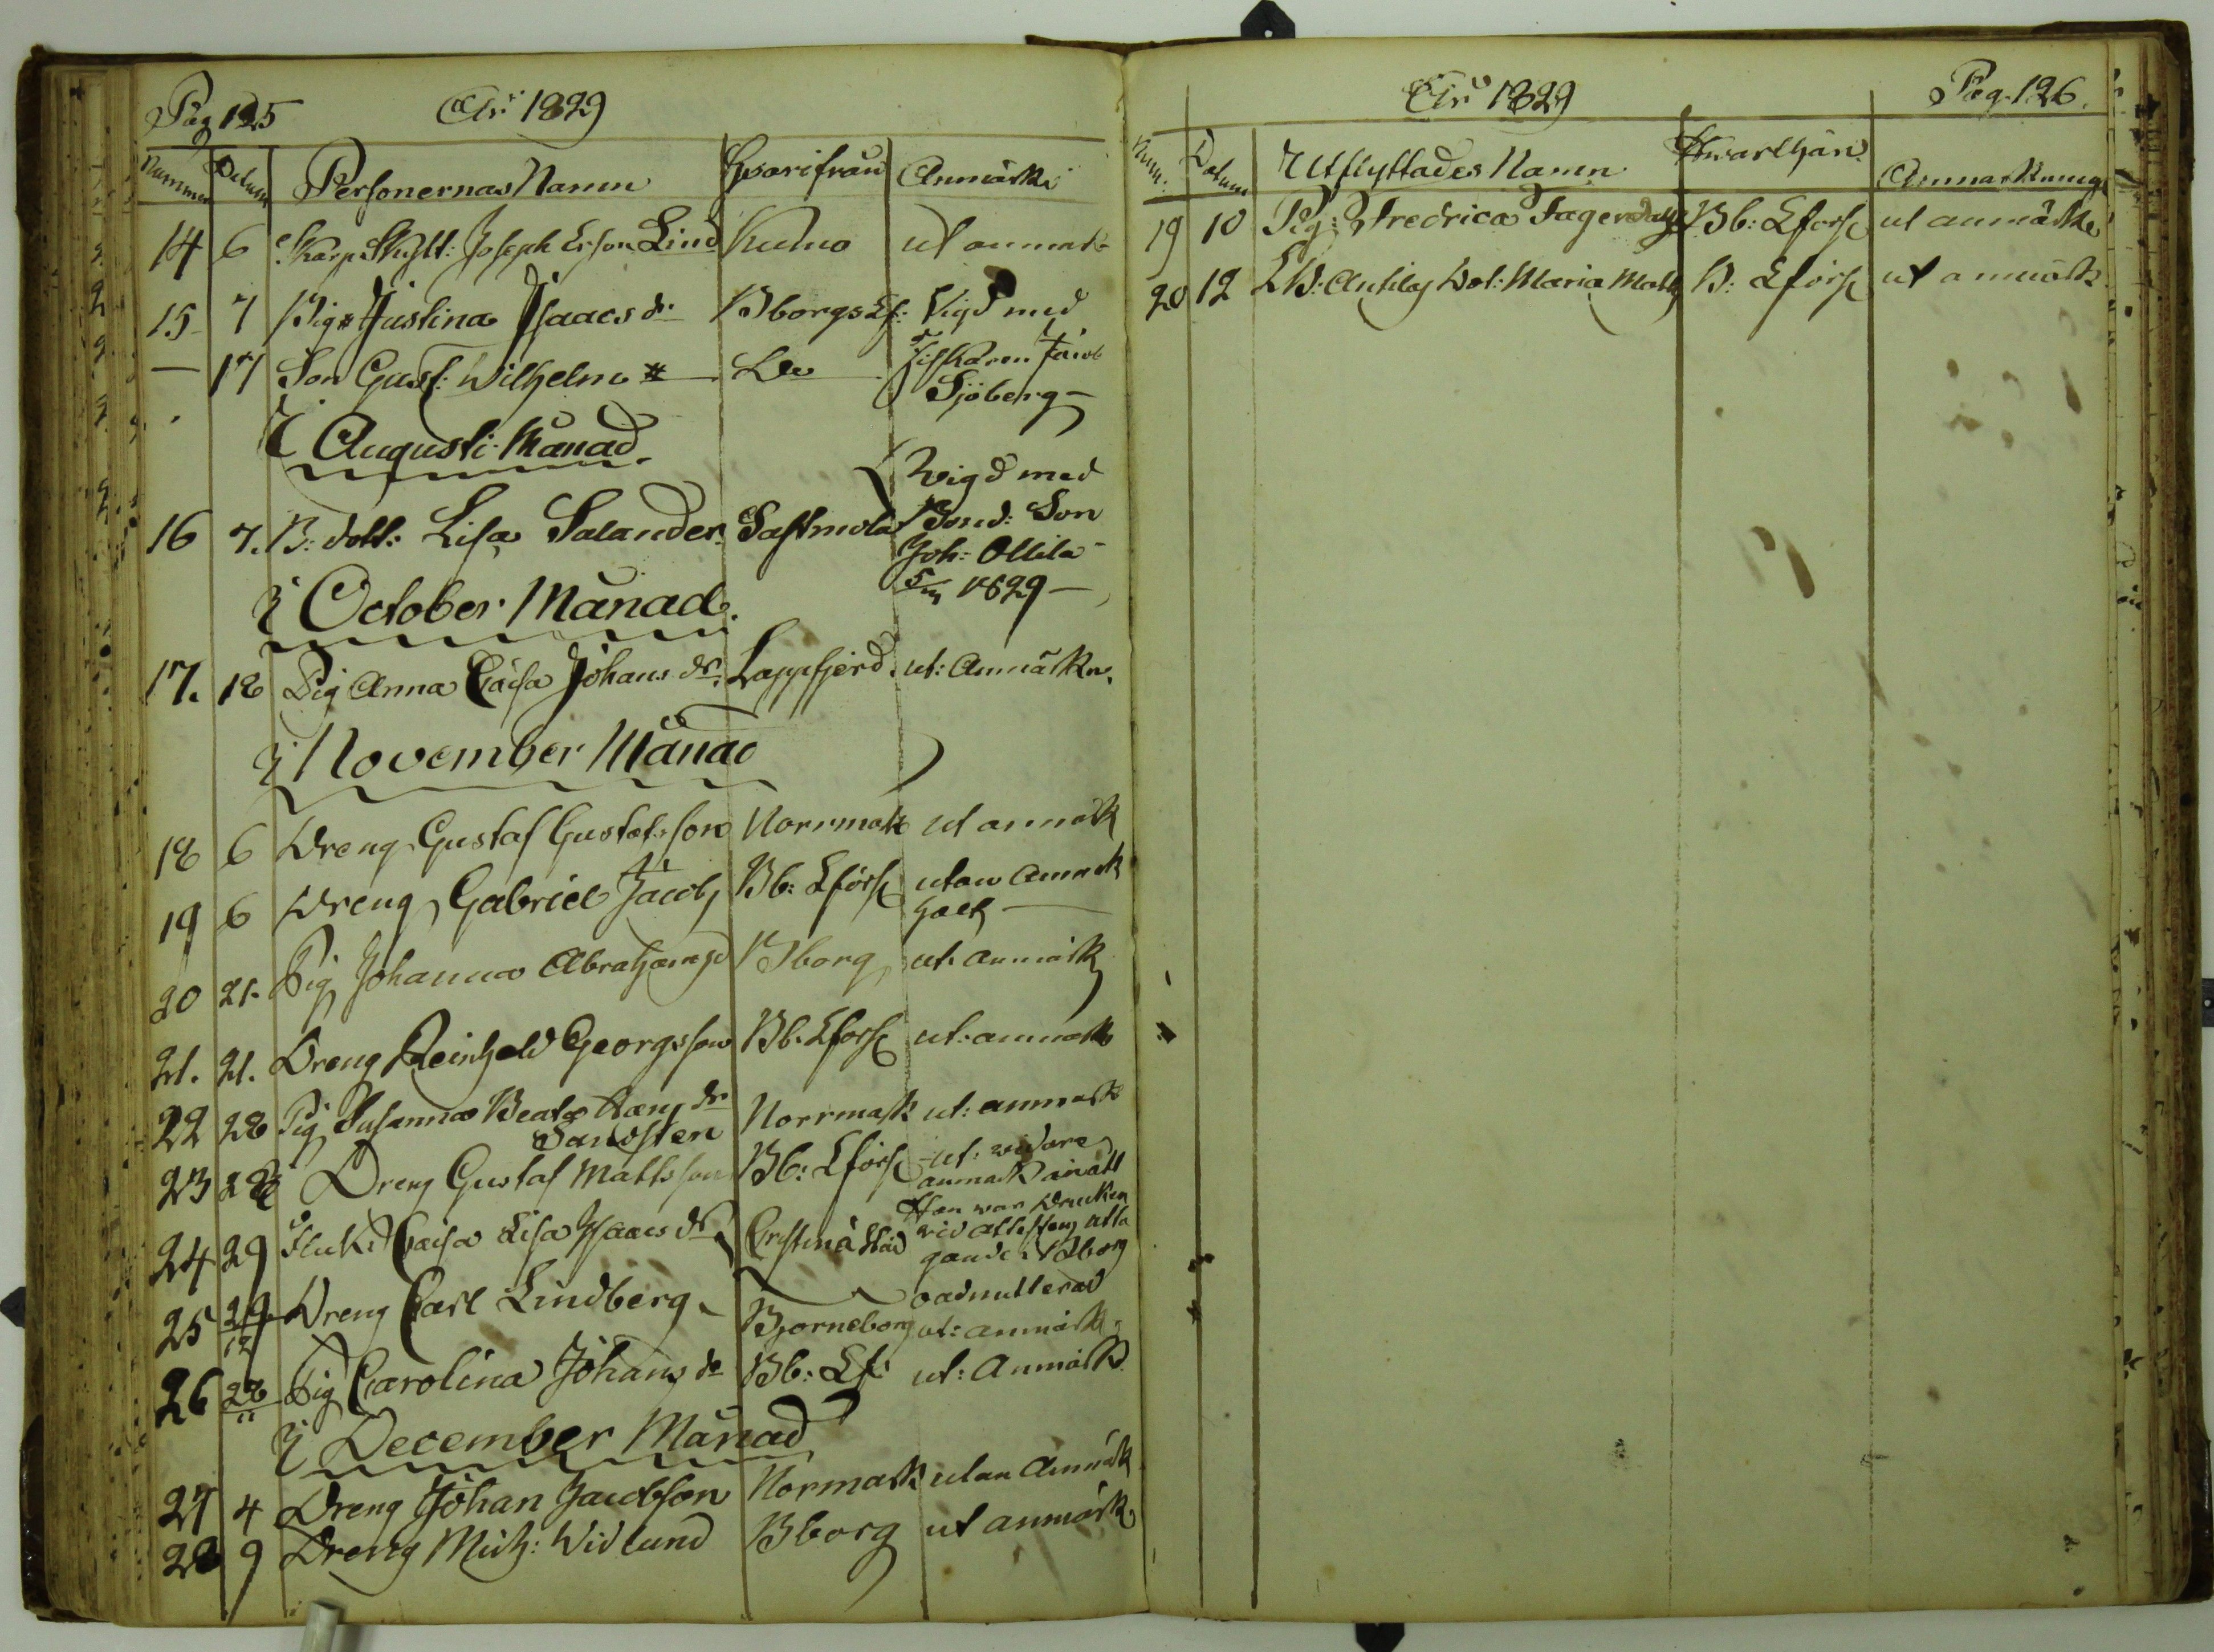 Pag 125 År 1829
Nummer Datum Personernas Namn Hvarifrån Anmärkn
14 6 Skarp Skytt: Joseph Ersson Lind Kumo ut anmärk
15 7 Pig Justina Isaacs dr Bborgs Lf: Vigd med
— 17 Son Gust: Wilhelm Do Fiskaren Jacob
Sjöberg —
I Augusti Månad.
Wigd med
16 7. B: dott: Lisa Salander Sastmola Bond: Son
Joh: Ollila
1829 —
I October Månad.
17. 18 Pig Anna Caisa Johans dr. Lappfjerd. ut: Anmärkn.
I November Månad
18 6 Dreng Gustaf Gustafsson Norrmark ut anmärk
19 6 Dreng Gabriel Jacobs Bb: Lförs utan Anmärk
20 21. Pig Johanna Abrahamsd Bborg ut. anmärk
21. 21. Dreng Reinhold Georgsson Bb. Lförs ut: anmärk
22 28 Pig Susanna Beata Norrmark ut: anmärk
Sandsten
23 28 Dreng Gustaf Mattsson Bb: Lförs ut: vidare
anmärk än att
Han var drucken
24 29 Caisa Lisa Isaacs dr Cristinæstad vid attestens utta
gande i Bborg
oadmitterad
25 29/12 Dreng Carl Lindberg Bjorneborg ut: anmärk
26 28/11 Pig Carolina Johans dr Bb: Lf: ut: Anmärk
I December Månad
27 4 Dreng Johan Jacobsson Normark utan Anmärk
28 9 Dreng Mich: Widlund Bborg ut anmärk
År 1829 Pag. 126.
Num: Datum Utflyttades Namn Hwarthän Anmärkning
19 10 Pig: Fredrica Fagerdahl Bb: Lförs ut anmärk
20 12 Dot: Maria Matts B: Lförs ut anmärk